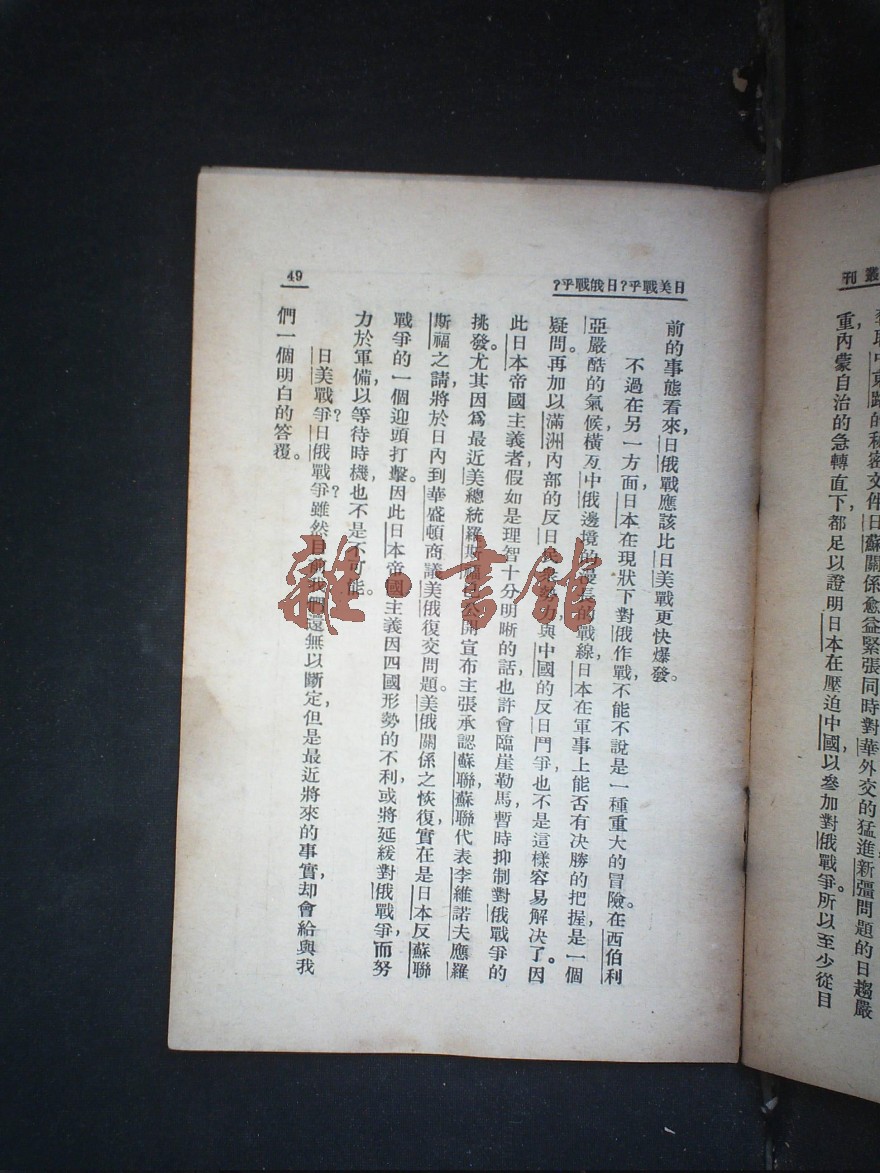 叢刊
取中東路的秘密文件,日蘇關係愈益緊張同時對華外交的猛進,新疆問題的日趨嚴
重,內蒙自治的急轉直下,都足以證明日本在壓迫中國,以參加對俄戰爭。所以至少從目
日美戰乎?日俄戰乎?
49
前的事態看來,日俄戰應該比日美戰更快爆發。
不過在另一方面,日本在現狀下對俄作戰,不能不說是一種重大的冒險。在西伯利
亞嚴酷的氣候,橫亙中俄邊境的漫長的戰線,日本在軍事上能否有決勝的把握,是一個
疑問。再加以滿洲內部的反日民衆勢力,與中國的反日鬥爭,也不是這樣容易解決了。因
此日本帝國主義者,假如是理智十分明晰的話,也許會臨崖勒馬,暫時抑制對俄戰爭的
挑發。尤其因爲最近美總統羅斯福已公開宣布主張承認蘇聯,蘇聯代表李維諾夫應羅
斯福之請,將於日內到華盛頓商議美俄復交問題。美俄關係之恢復,實在是日本反蘇聯
戰爭的一個迎頭打擊。因此日本帝國主義因四國形勢的不利,或將延緩對俄戰爭,而努
力於軍備,以等待時機,也不是不可能。
日美戰爭?日俄戰爭?雖然目前我們還無以斷定,但是最近將來的事實,却會給與我
們一個明白的答覆。
雜·書館